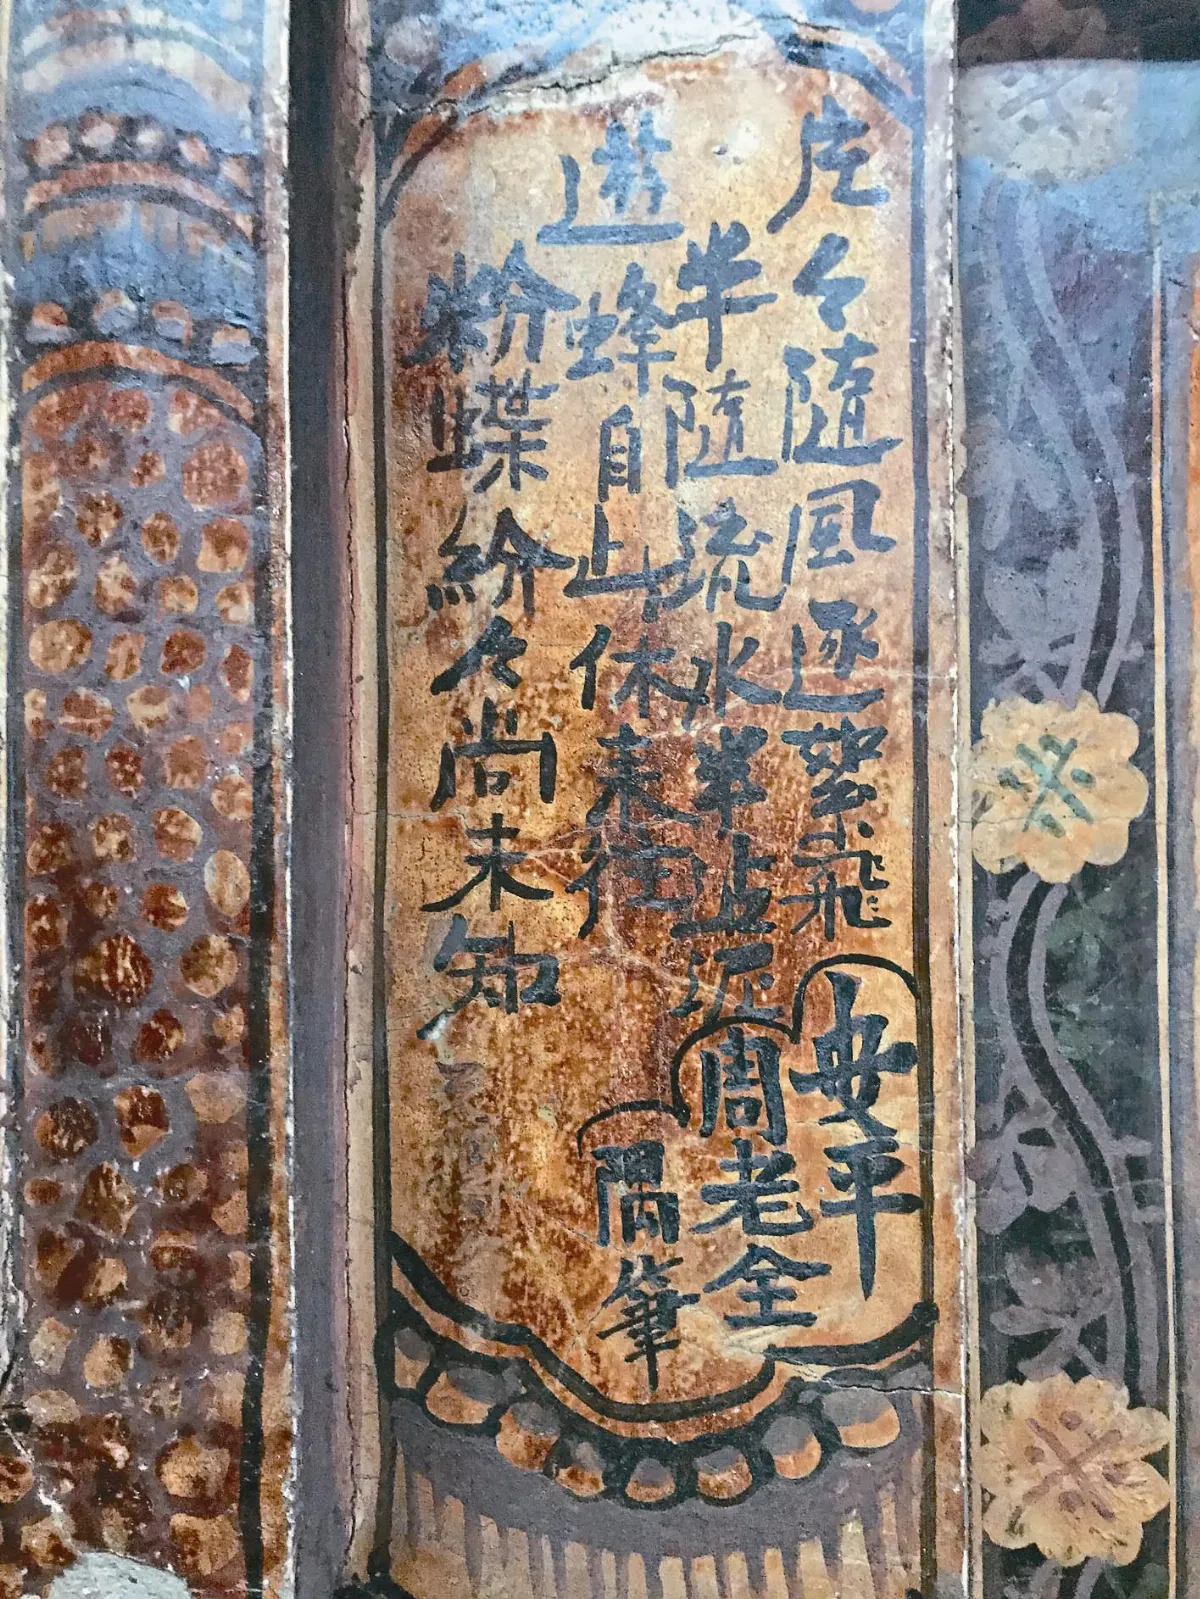 片々隨風逐絮飛
半隨流水半沾泥
遊蜂自此休来往
粉蝶紛々尚未知
安平
周老全
隅筆